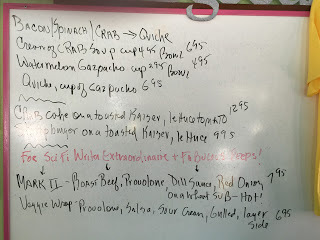 BACON/SPINACH/CRAB → Quiche
Cream of CRAB Soup cup 4.95 Bowl 6.95
Watermelon Gazpacho cup 2.95 Bowl 4.95
Quiche, cup of gazpacho 6.95
CRAB cake on a toasted KAISER, lettuce tomato 12.95
on a toasted Kaiser, lettuce 9.95
For Sci Fi Writer Extraordinaire + Fabulous Peeps!
MARK II - Roast Beef, Provolone, Dill Sauce, Red Onion, 7.95
on a wheat Sub - HOT!
Veggie Wrap - Provolone, Salsa, Sour Cream, Grilled,
Side 6.95